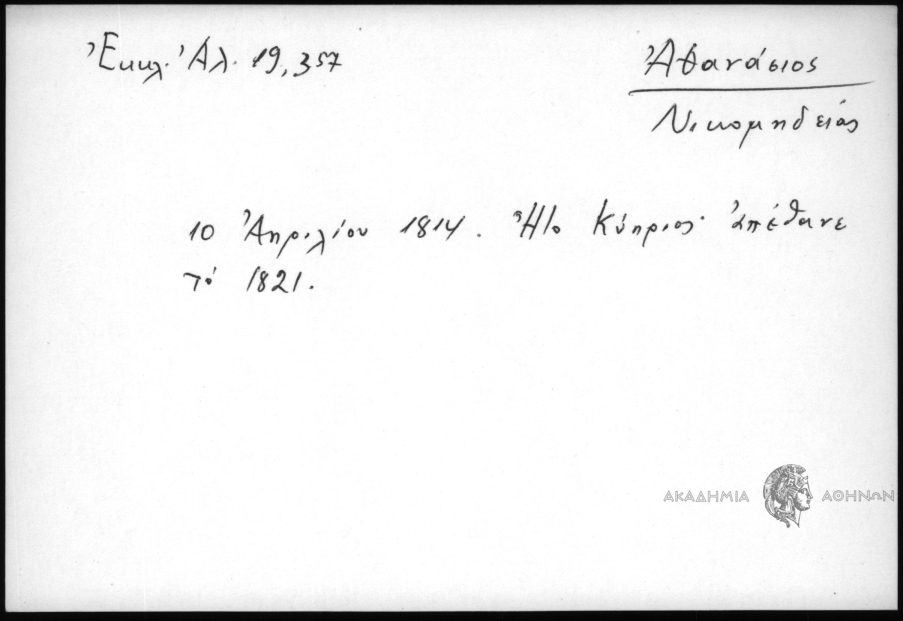 Ἐκκλ. Ἀλ. 19, 357
Ἀθανάσιος
Νικομηδείας
10 Ἀπριλίου 1814. Ἦτο Κύπριος· ἀπέθανε
τό 1821.
ΑΚΑΔΗΜΙΑ ΑΘΗΝΩΝ